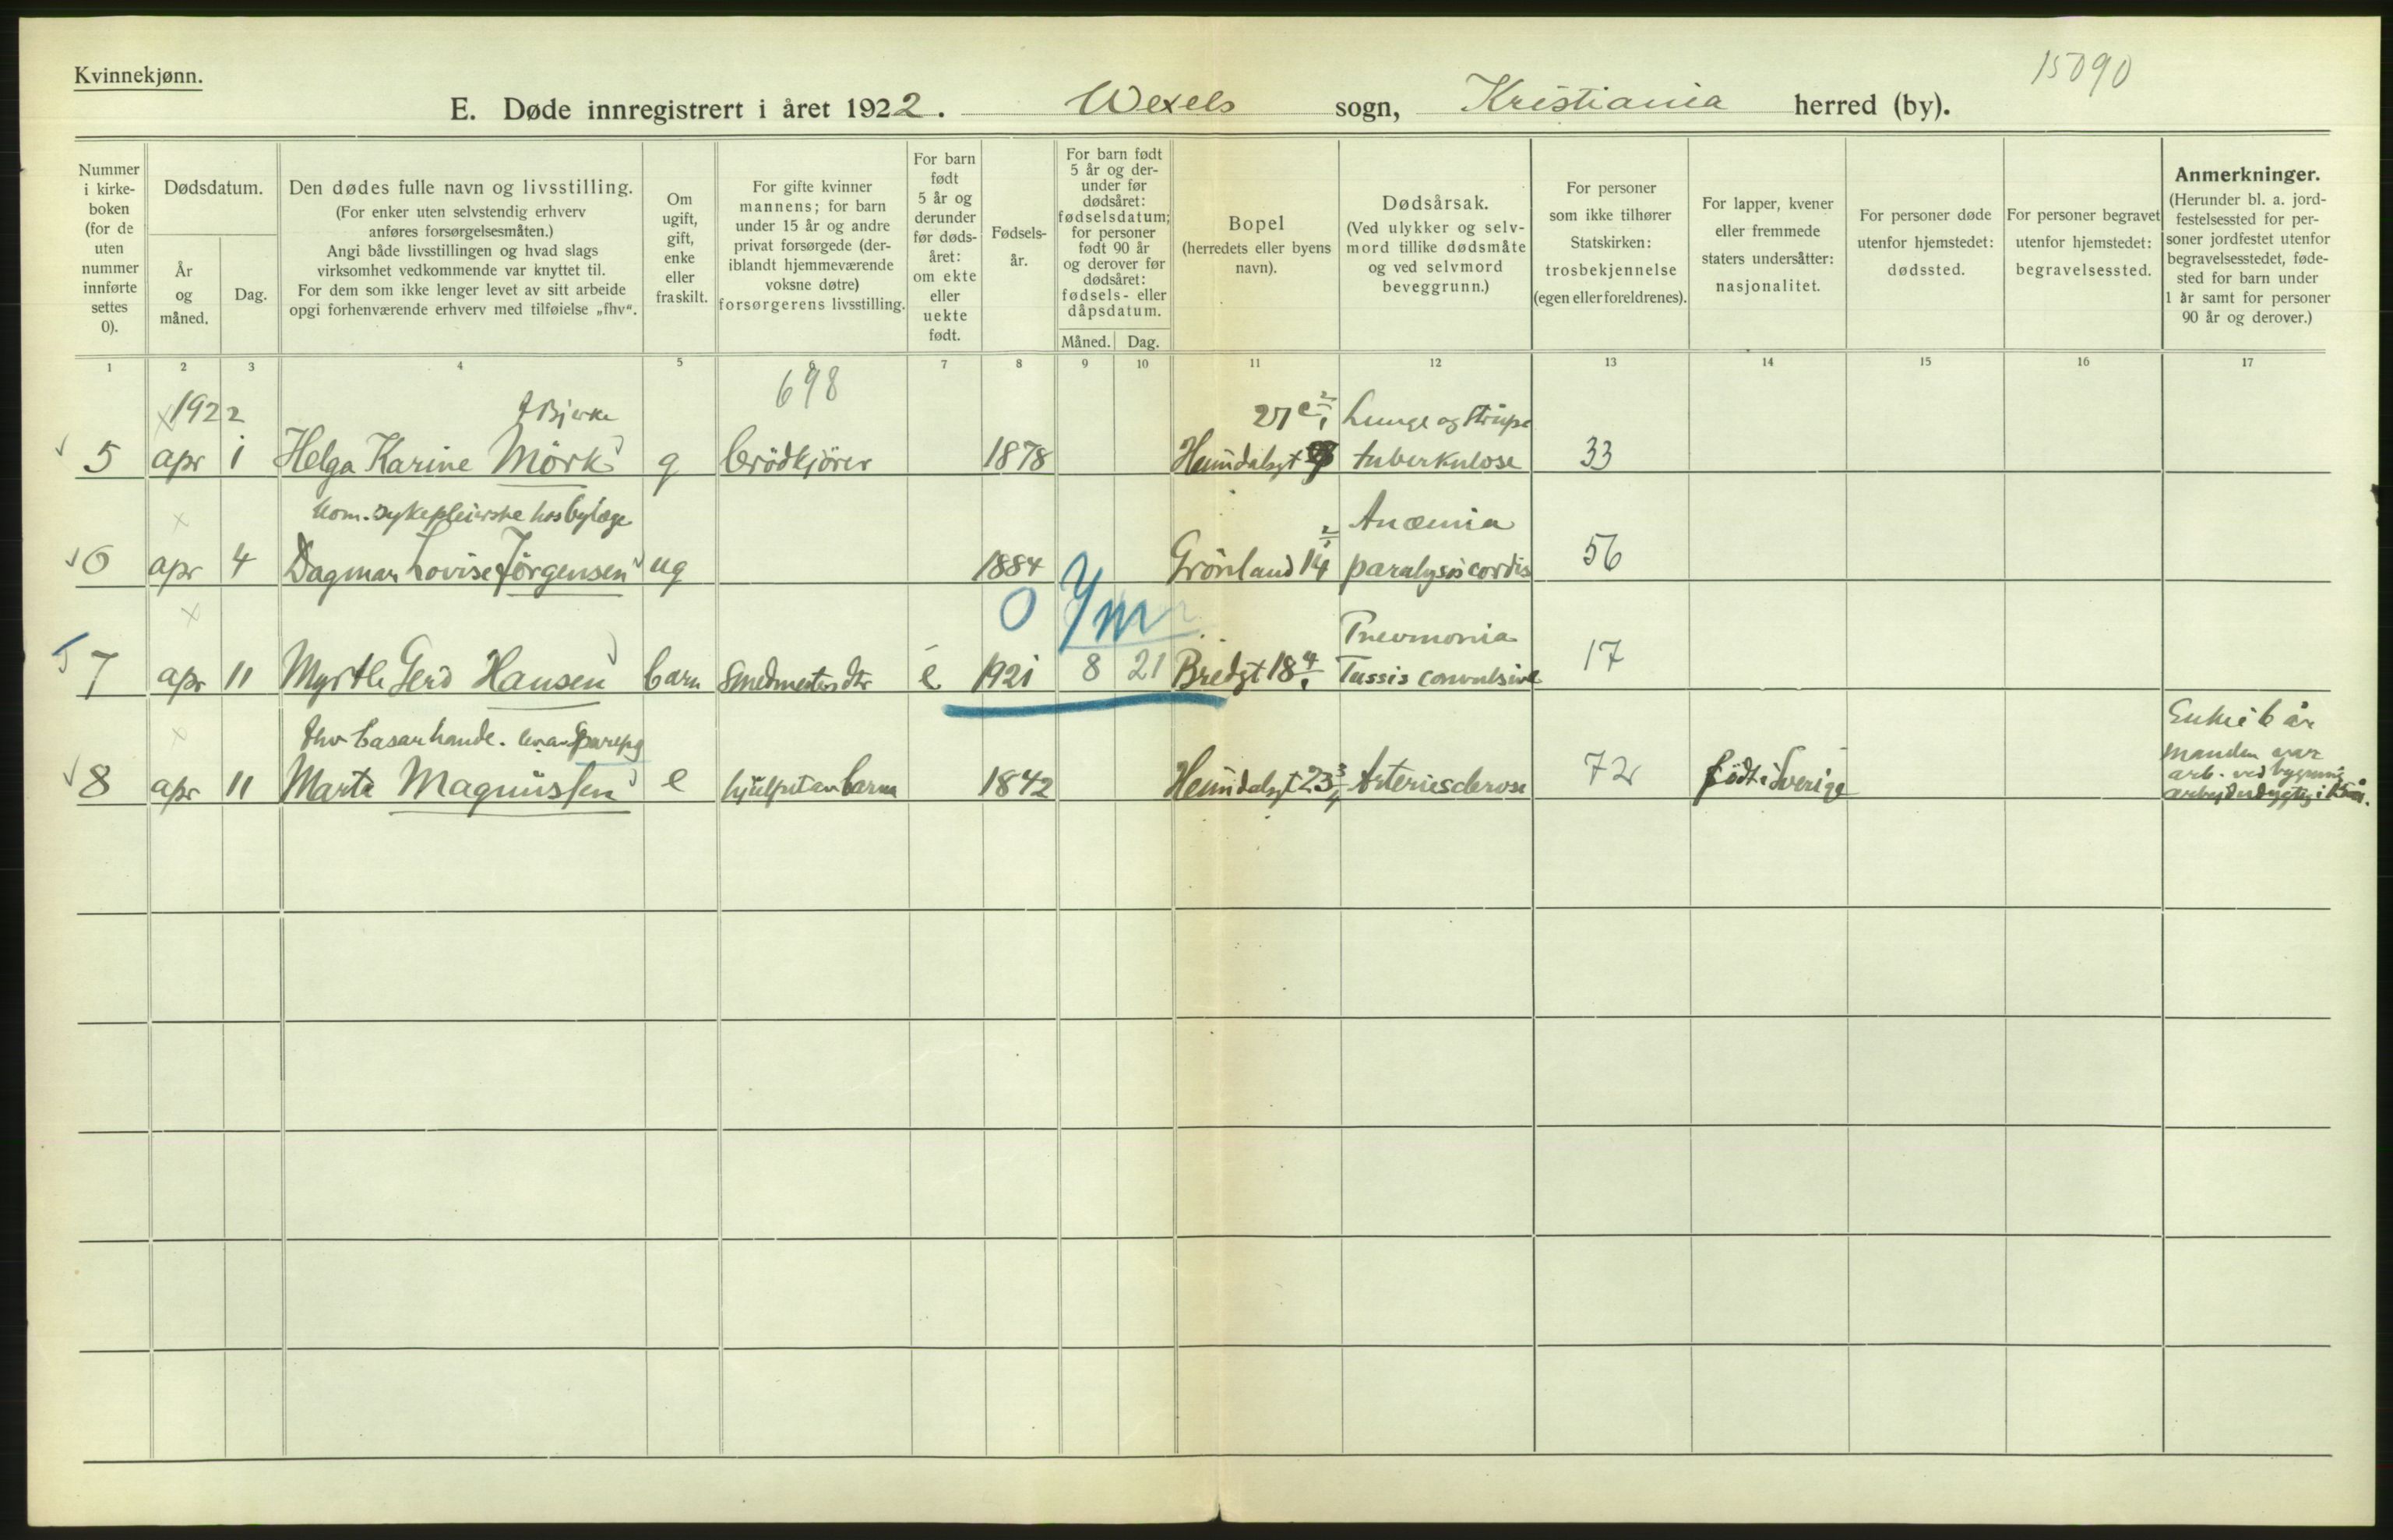 Kvinnekjønn.
15090
E. Døde innregistrert i året 1922. Wexels sogn, Kristiania herred (by).
Nummer i kirke- boken (for de uten nummer innførte settes 0).
Dødsdatum.
År og måned.
Dag.
Den dødes fulle navn og livsstilling.
(For enker uten selvstendig erhverv
anføres forsørgelsesmåten.)
Angi både livsstillingen og hvad slags
virksomhet vedkommende var knyttet til.
For dem som ikke lenger levet av sitt arbeide
opgi forhenværende erhverv med tilføielse „fhv“.
Om ugift, gift, enke eller fraskilt.
For gifte kvinner
mannens; for barn
under 15 år og andre
privat forsørgede (der-
iblandt hjemmeværende
voksne døtre)
forsørgerens livsstilling.
For barn født 5 år og derunder før døds- året: om ekte eller uekte født.
Fødsels- år.
For barn født 5 år og der- under før dødsåret: fødselsdatum; for personer født 90 år og derover før dødsåret: fødsels- eller dåpsdatum.
Måned.
Dag.
Bopel
(herredets eller byens
navn).
Dødsårsak.
(Ved ulykker og selv-
mord tillike dødsmåte
og ved selvmord
beveggrunn.)
For personer
som ikke tilhører
Statskirken:
trosbekjennelse
(egen eller foreldrenes).
For lapper, kvener
eller fremmede
staters undersåtter:
nasjonalitet.
For personer døde
utenfor hjemstedet:
dødssted.
For personer begravet
utenfor hjemstedet:
begravelsessted.
Anmerkninger.
(Herunder bl. a. jord-
festelsessted for per-
soner jordfestet utenfor
begravelsesstedet, føde-
sted for barn under
1 år samt for personer
90 år og derover.)
1 2 3 4 5 6 7 8 9 10 11 12 13 14 15 16 17
698
1922 f Bjerke 27 Lunge og Strupe
5 apr 1 Helga Karine Mörk g brödkjörer 1878 Heimdalsgt tuberkulose 33
kom. sykepleierske hos bylæge Anæmia
6 apr 4 Dagmar Lovise Jörgensen ug 1884 Grönland 14 paralysis cordis 56
0 7m
Pneumonia
7 apr 11 Myrtle Gerd Hansen barn Smedmesters dtr e 1921 8 21 Bredgt 18 Tussis convulsiva 17
fhv basarhandl. Enke i 6 år
manden var
8 apr 11 Marte Magnussen e hjulpet av barna 1842 Heimdalsgt 23 3/4 Arteriesclerose 72 født i Sverige arb. ved bygning